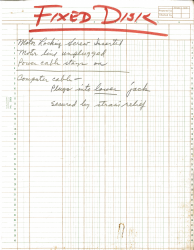 FIXED DISK
Motor Locking Screw Inserted
Motor line unplugged
Power cable stays on
Computer cable -
Plugs into lower jack
Secured by strain relief